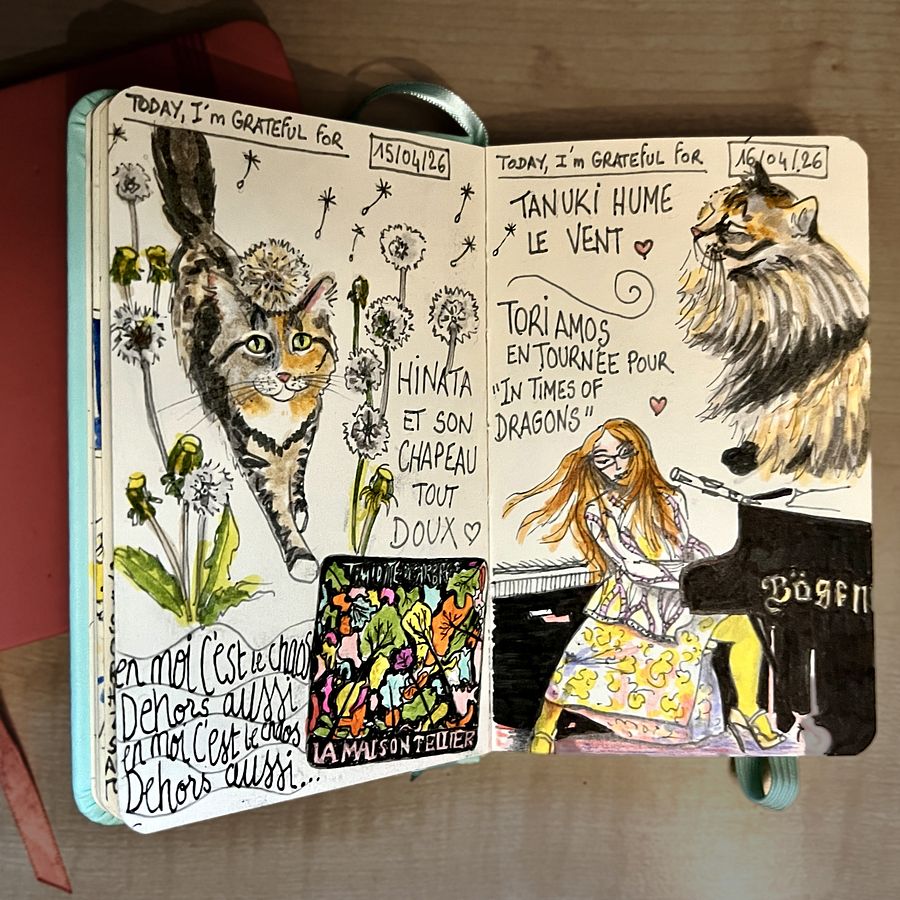 TODAY, I'm GRATEFUL FOR
15/04/26
HINATA
ET SON
CHAPEAU
TOUT
DOUX
en moi c'est le chaos
Dehors aussi
en moi c'est le chaos
Dehors aussi...
LA MAISON TELLIER
TODAY, I'm GRATEFUL FOR
16/04/26
TANUKI HUME
LE VENT
TORI AMOS
EN TOURNÉE POUR
"IN TIMES OF
DRAGONS"
BÖSEN